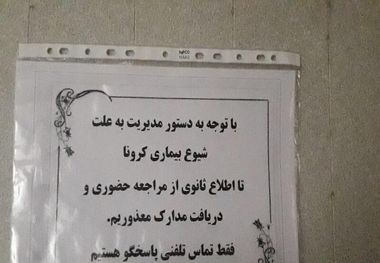 با توجه به دستور مدیریت به علت
شیوع بیماری کرونا
تا اطلاع ثانوی از مراجعه حضوری و
دریافت مدارک معذوریم.
فقط تماس تلفنی پاسخگو هستیم